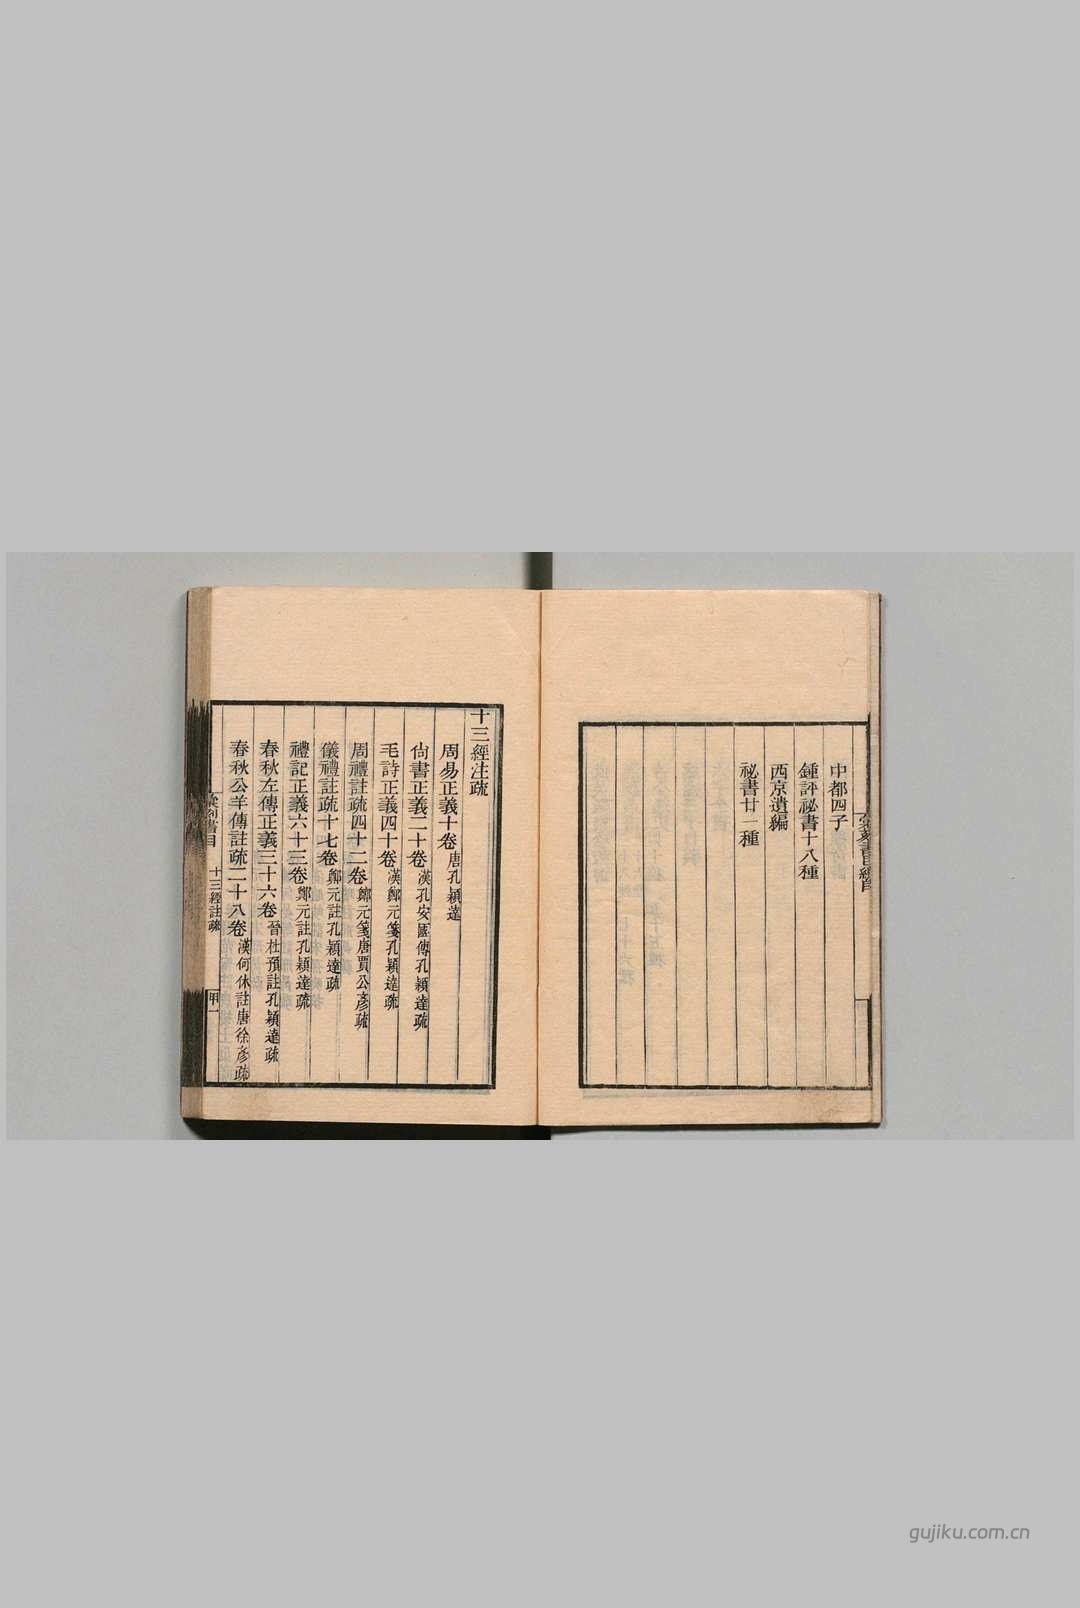 中都四子
鍾評祕書十八種
西京遺編
祕書廿一種
十三經注疏
周易正義十卷 唐孔穎達
尙書正義二十卷 漢孔安國傳孔穎達疏
毛詩正義四十卷 漢鄭元箋孔穎達疏
周禮註疏四十二卷 鄭元箋唐賈公彥疏
儀禮註疏十七卷 鄭元註孔穎達疏
禮記正義六十三卷 鄭元註孔穎達疏
春秋左傳正義三十六卷 晉杜預註孔穎達疏
春秋公羊傳註疏二十八卷 漢何休註唐徐彥疏
書目 十三經註疏 甲一
gujiku.com.cn